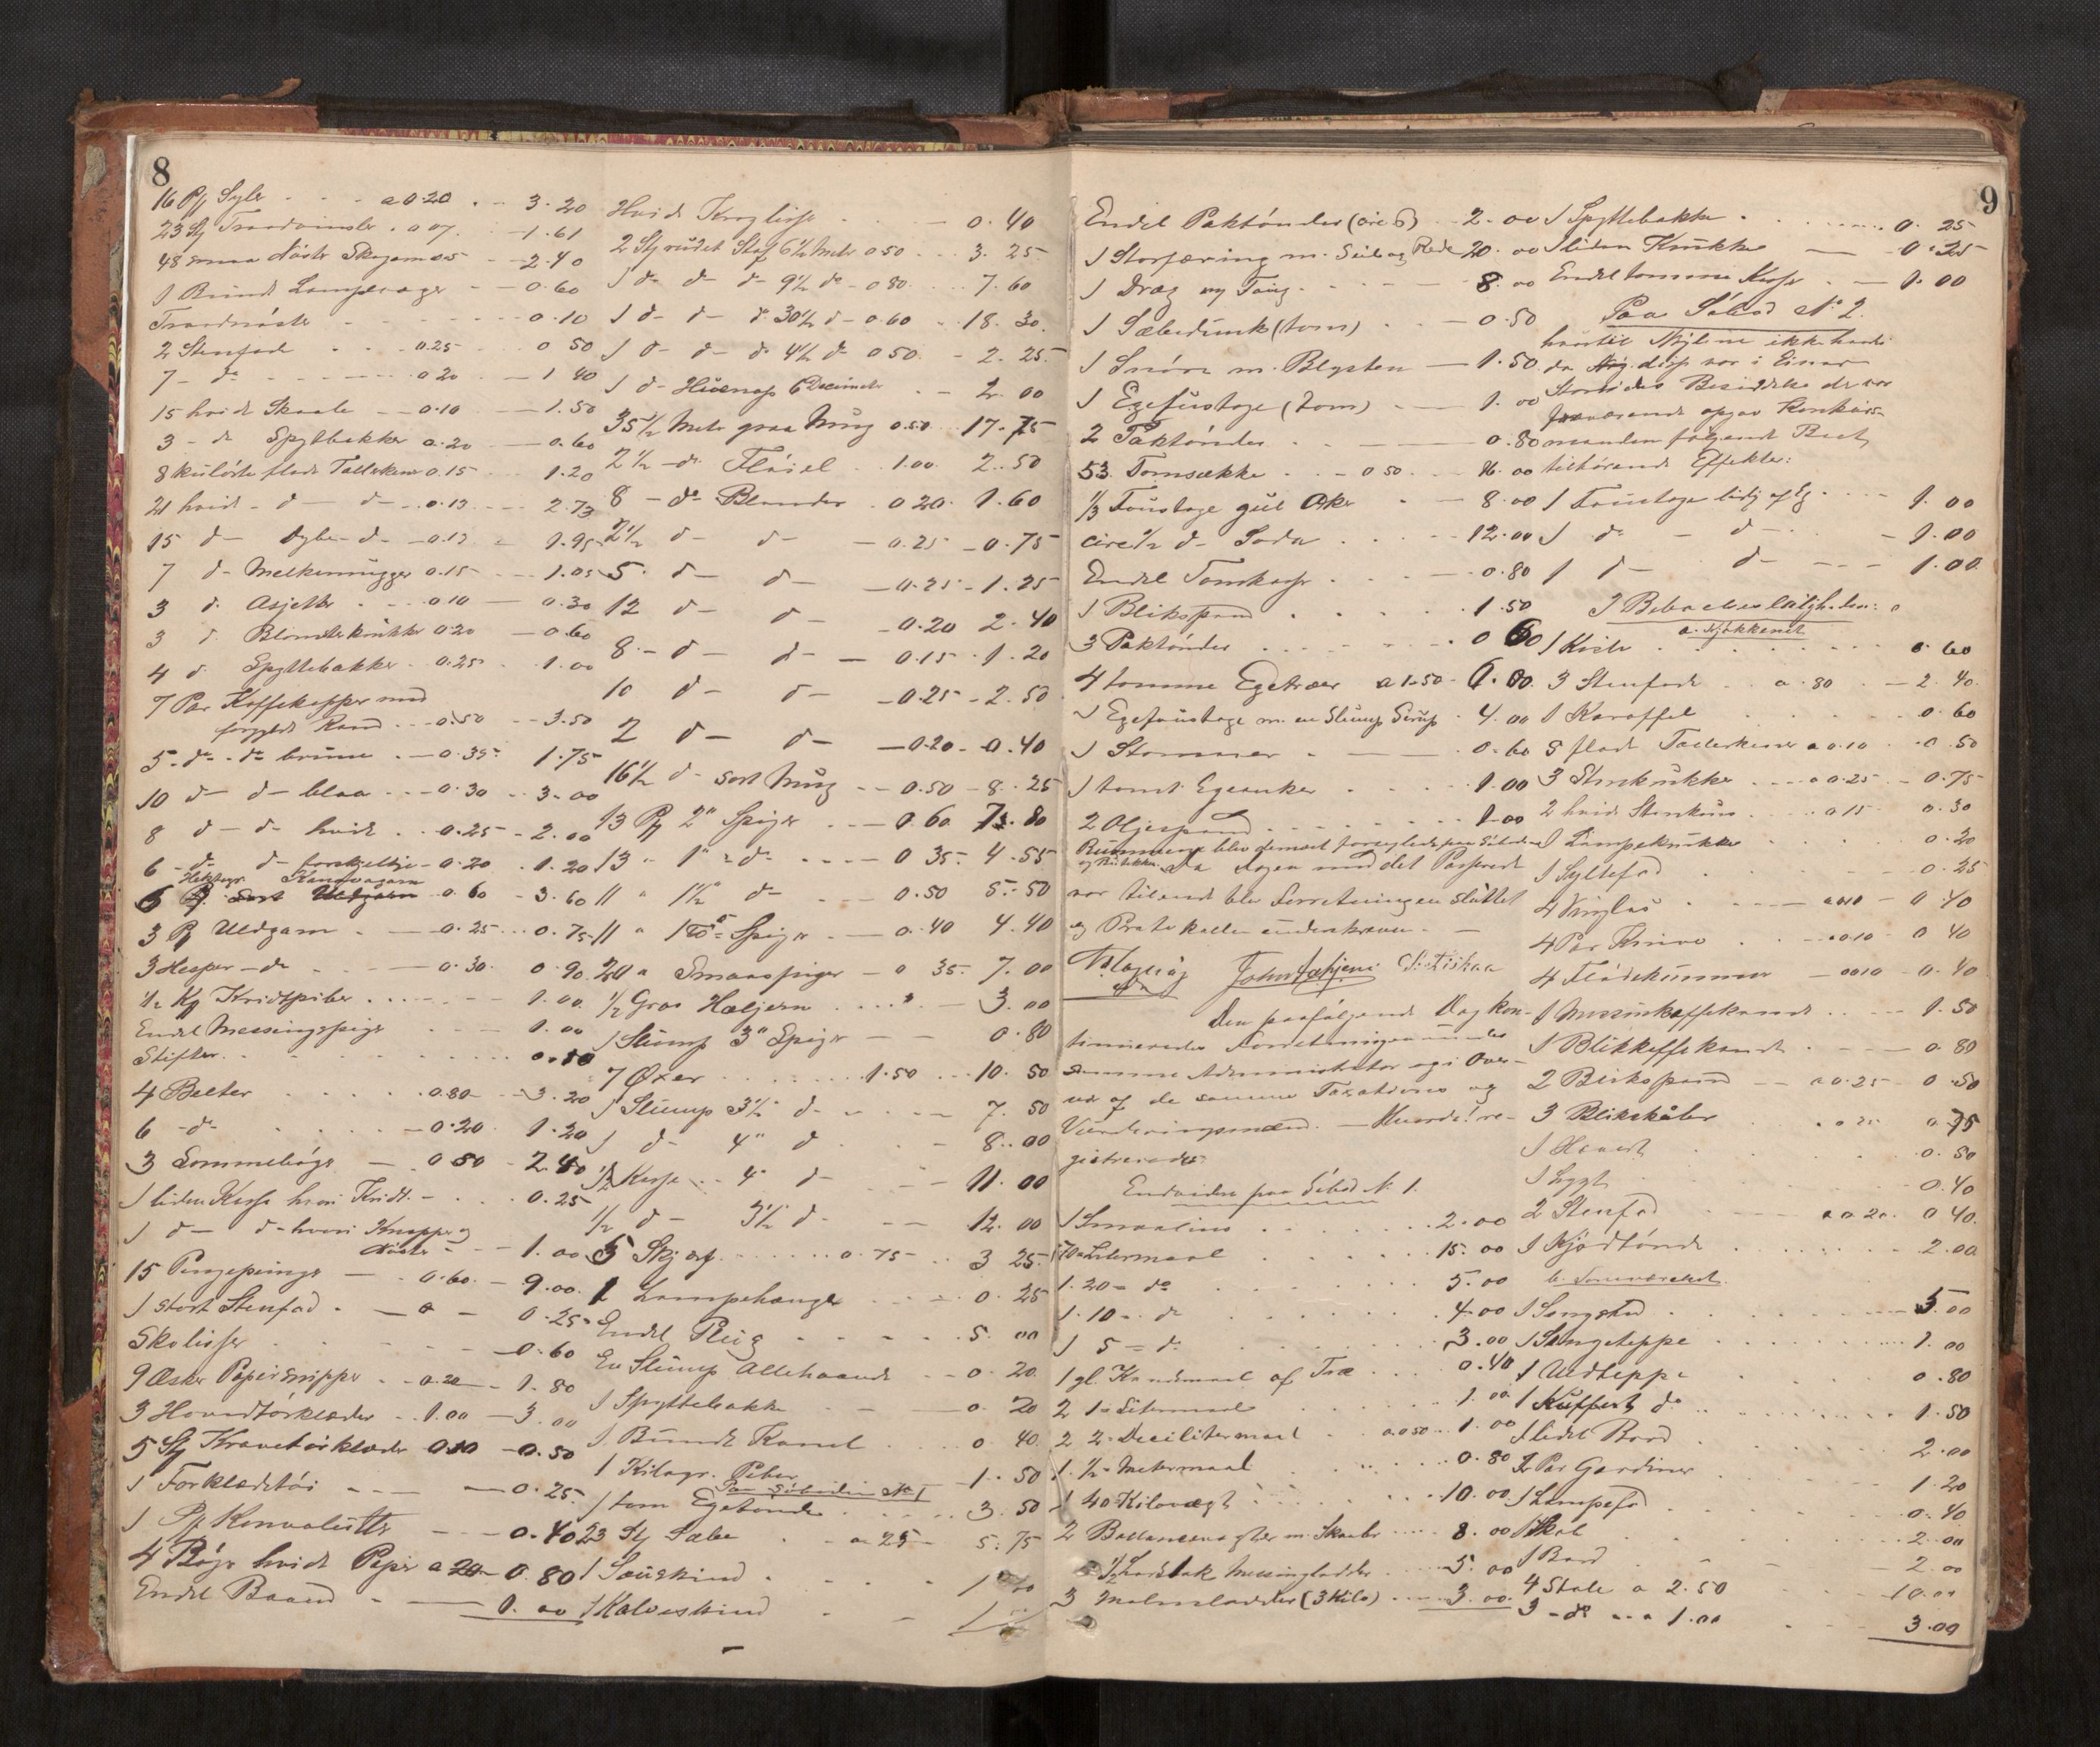 8
16 Pk Syler - - - a 0.20 - - 3.20
23 St Traadvinsler - a 07 - 1.61
48 smaa Nöster Skogarn a 5 - 2.40
1 Bundt Lampevæger - - 0.60
Traadnöster - - - 0.10
2 Stenfade - - - 0.25 0 50
7 - do - - - 0 20 - 1 40
15 hvide Skaale - - 0.10 - 1.50
3 - do Spyttbakker a. 20 - 0.60
8 kulörte flade Tallerkener 0.15 - - 1.20
21 hvide - d - d - - 0.13 - - 2.73
15 d - dybe - d - - 0.13 - 1.95
7 d - Melkemugger 0.15 - - 1.05
3 d. Asjetter - - 0 10 - 0.30
3 d. Blomsterkrukker 0.20 - 0.60
4 d. Spyttebakker - 0.25 - 1.00
7 Par Kaffekopper med
forgyldt Rand - - 0.50 - - 3.50
5 - do - do brune - - 0.35 1.75
10 d - d - blaa - - - 0.30 - - 3.00
8 d - d - hvide - - 0.25 - 2.00
6 - do d - forskjellige - 0.20 - 1.20
Hektogr. Kanevagarn
6 Pk Sort Uldgarn 0.60 - 3.60
3 Pk Uldgarn - - 0.25 - - 0.75
3 Hesper - do - - - 0.30 0.90
1/2 Kg Kridtpiber - - - 1.00
Endel Messingspiger - - - 1.00
Stifter - - - 0.80
4 Belter - - - 0.80 - 3.20
6 - do - - - 0.20 1.20
3 Lommebøger - 0 80 - 2.40
1 liden Kasse hvori Kridt - - 0.25
1 d - d - hvori Knapper og
Nöster - - - 1.00
15 Pengepunge - - 0.60 - 9.00
1 stort Stenfad - - 0 - 0.25
Skolisser - - - 0.60
9 Æsker Papirsnipper - - 0.20 - 1.80
3 Hovedtörklæder - - 1.00 - 3.00
5 St Kravetörklæder 0.10 - 0.50
1 Forklædetöi - - - 0.25
1 Pk Konvolutter - - - 0.40
4 Bøger hvidt Papir a 20 - 0.80
Endel Baand - - 1.00
Hvide Kroglisser - - - 0.40
2 St rudet Stof 6 1/2 Meter 0 50 - - 3.25
1 do do do 9 1/2 do - 0 80 - - 7.60
1 d - d - do 30 1/2 d - 0.60 - 18.30
1 d - d - do 4 1/2 do 0 50 - 2.25
1 d - 6 Decimeter - - 2.00
35 1/2 Meter graa 0.50 - 17.75
2 1/2 - do Flöiel - - 1.00 2.50
8 - do Blonder - 0 20 1.60
2 1/2 d - d - - 0.25 - 0.75
5 d - d - - 0.25 - 1.25
12 d - d - - 0.20 2.40
8 - d d - - 0.15 - 1.20
10 d - d - - 0.25 - 2.50
2 d - d - - 0.20 - 0.40
16 1/2 d - sort - - 0.50 - 8.25
13 Pk 2" Spiger - - - 0.60 7.80
13 " 1" = do - - - - 0 35 - 4.55
11 " 1 1/2" do - - - 0.50 5.50
11 " Spiger - - 0.40 4.40
20 " Smaaspiger - 0 35 - 7.00
1/2 Gros Hæljern - - - - 3.00
1 Slump 3" Spiger - - 0.80
7 Øxer - - - 1.50 - - 10.50
1 Slump 3 1/2 d - - - 7.50
1 d - 4" d - - - 8.00
1/2 Kasse - - 4" d - - - 11.00
1/2 d - 3 1/2 d - - - 12.00
5 Skjærf - - - 0.75 - - 3 25
1 Lampehanger - - - 0.25
Endel - - - 5.00
En Slump Allehaande - - 0.20
1 Spyttebakke - - - 0.20
1 Bundt Kanel - - - 0 40
1 Kilogr. Peber - - - 1.50
Paa Söboden No 1
1 tom Egetønde - - - 3.50
23 St Sæbe - - a 25 - 5.75
1 Saueskind - - -
1 Kalveskind - - -
9
Endel Paktönder (circ 6) - 2.00
1 Storfæring m. Seil og Rede 20.00
1 Dræg og Toug - - - 8.00
1 Sæbedunk (tom) - - 0.50
1 Snøre m. Blysten - 1.50
1 Egefustage (tom) - - 1.00
2 Paktönder - - - 0.80
53 Tomsække - - - 0 50 - - 16.00
1/3 Foustage gul Oker - - 8.00
circ 1/2 d - Soda - - - 12.00
Endel Tomkasser - - - 0.80
1 Blikspand - - - 1.50
3 Paktönder - - - 0 60
4 tomme Egetræer a 1.50 - 6.00
1 Egefoustage m. en Slump Sirup - 4.00
1 Stommer - - 0.60
1 tomt Egeanker - - - 1.00
2 Oljespand - - - 1.00
Rummene blev dernæst forseglede paa Söboden
og Butikken. Da Dagen med det Passerede
var tilende blev Forretningen sluttet
og Protokollen underskreven. -
Den paafölgende Dag kon-
tinueredes Forretningen under
samme Administrator og i Over-
vær af de samme Taxations og
Vurderingsmænd. - Hvorda! re-
gistreredes:
Endvidere paa Söbod No 1.
1 Smaalins - - - 2.00
1 70 Litermaal - - 15.00
1. 20 = do - - - 5.00
1. 10 - . d - - - 4.00
1 5 = d. - - - 3.00
1 gl. Kandemaal af Træ - - - 0.40
2 1 = Litermaal - - - 1.00
2 2 - Decilitermaal - - a 0 50 - 1.00
1. 1/2 - Metermaal - - - 0.80
1 40 Kilovægt - - - 10.00
2 Ballancevægter m. Skaaler - - - 8.00
Messinglodder - - - 5.00
3 Malmlodder (3 Kilo) - - - 3.00
1 Spyttebakke - - - 0.25
1 liden Krukke - - 0.25
Endel tomme Kasser - - 1.00
Paa Söbod No 2.
hvortil Nöglene ikke havdes
da disse var i Einar
Storviks Besiddelse der var
fraværende opgav Konkurs-
manden følgende Boet
tilhørende Effekter:
1 Foustage af Eg - - - 1.00
1 do - d - - - 1.00
1 d - d - - - - 1.00
I Beboelsesleiligheden:
a. Kjøkkenet
1 Kiste - - - 0.60
3 Stenfade - a .80 - - 2.40
1 Karaffel - - - 0.60
5 flade Tallerkener a 0.10 - 0.50
3 Stenkrukker - - - a 0.25 - 0.75
2 hvide Stenkrus - - - a 15 - 0.30
1 Lampekrukke - - - 0.20
1 Syltefad - - - 0.25
4 Vinglas - - - a 010 - 0 40
4 Par Knive - - - a 0.10 - 0 40
4 Flödekummer - - a 010 - 0.40
1 Messinkaffekande - - - 1.50
1 Blikkaffekande - - - 0.80
2 Blikspand - - a 0.25 - 0.50
3 Blikskåler - a 25 0.75
1 - - - 0.50
1 Lygt - - - 0.40
2 Stenfad - - - a 0.20 - 0 40
1 Kjødtönde - - - 2.00
b. Soveværelset.
1 Sengsted - - - 5.00
1 Sengeteppe - - - 1.00
1 Uldteppe - - - 0.80
1 Kuffert do - - - 1.50
1 lidet Bord - - - 2.00
2 Par Gardiner - - - 1.20
1 Lampefod - - - 0.40
1 Skab - - - 2.00
1 Bord - - - 2.00
4 Stole a 2.50 - - 10.00
3 - do - - a 1.00 - - - 3.00